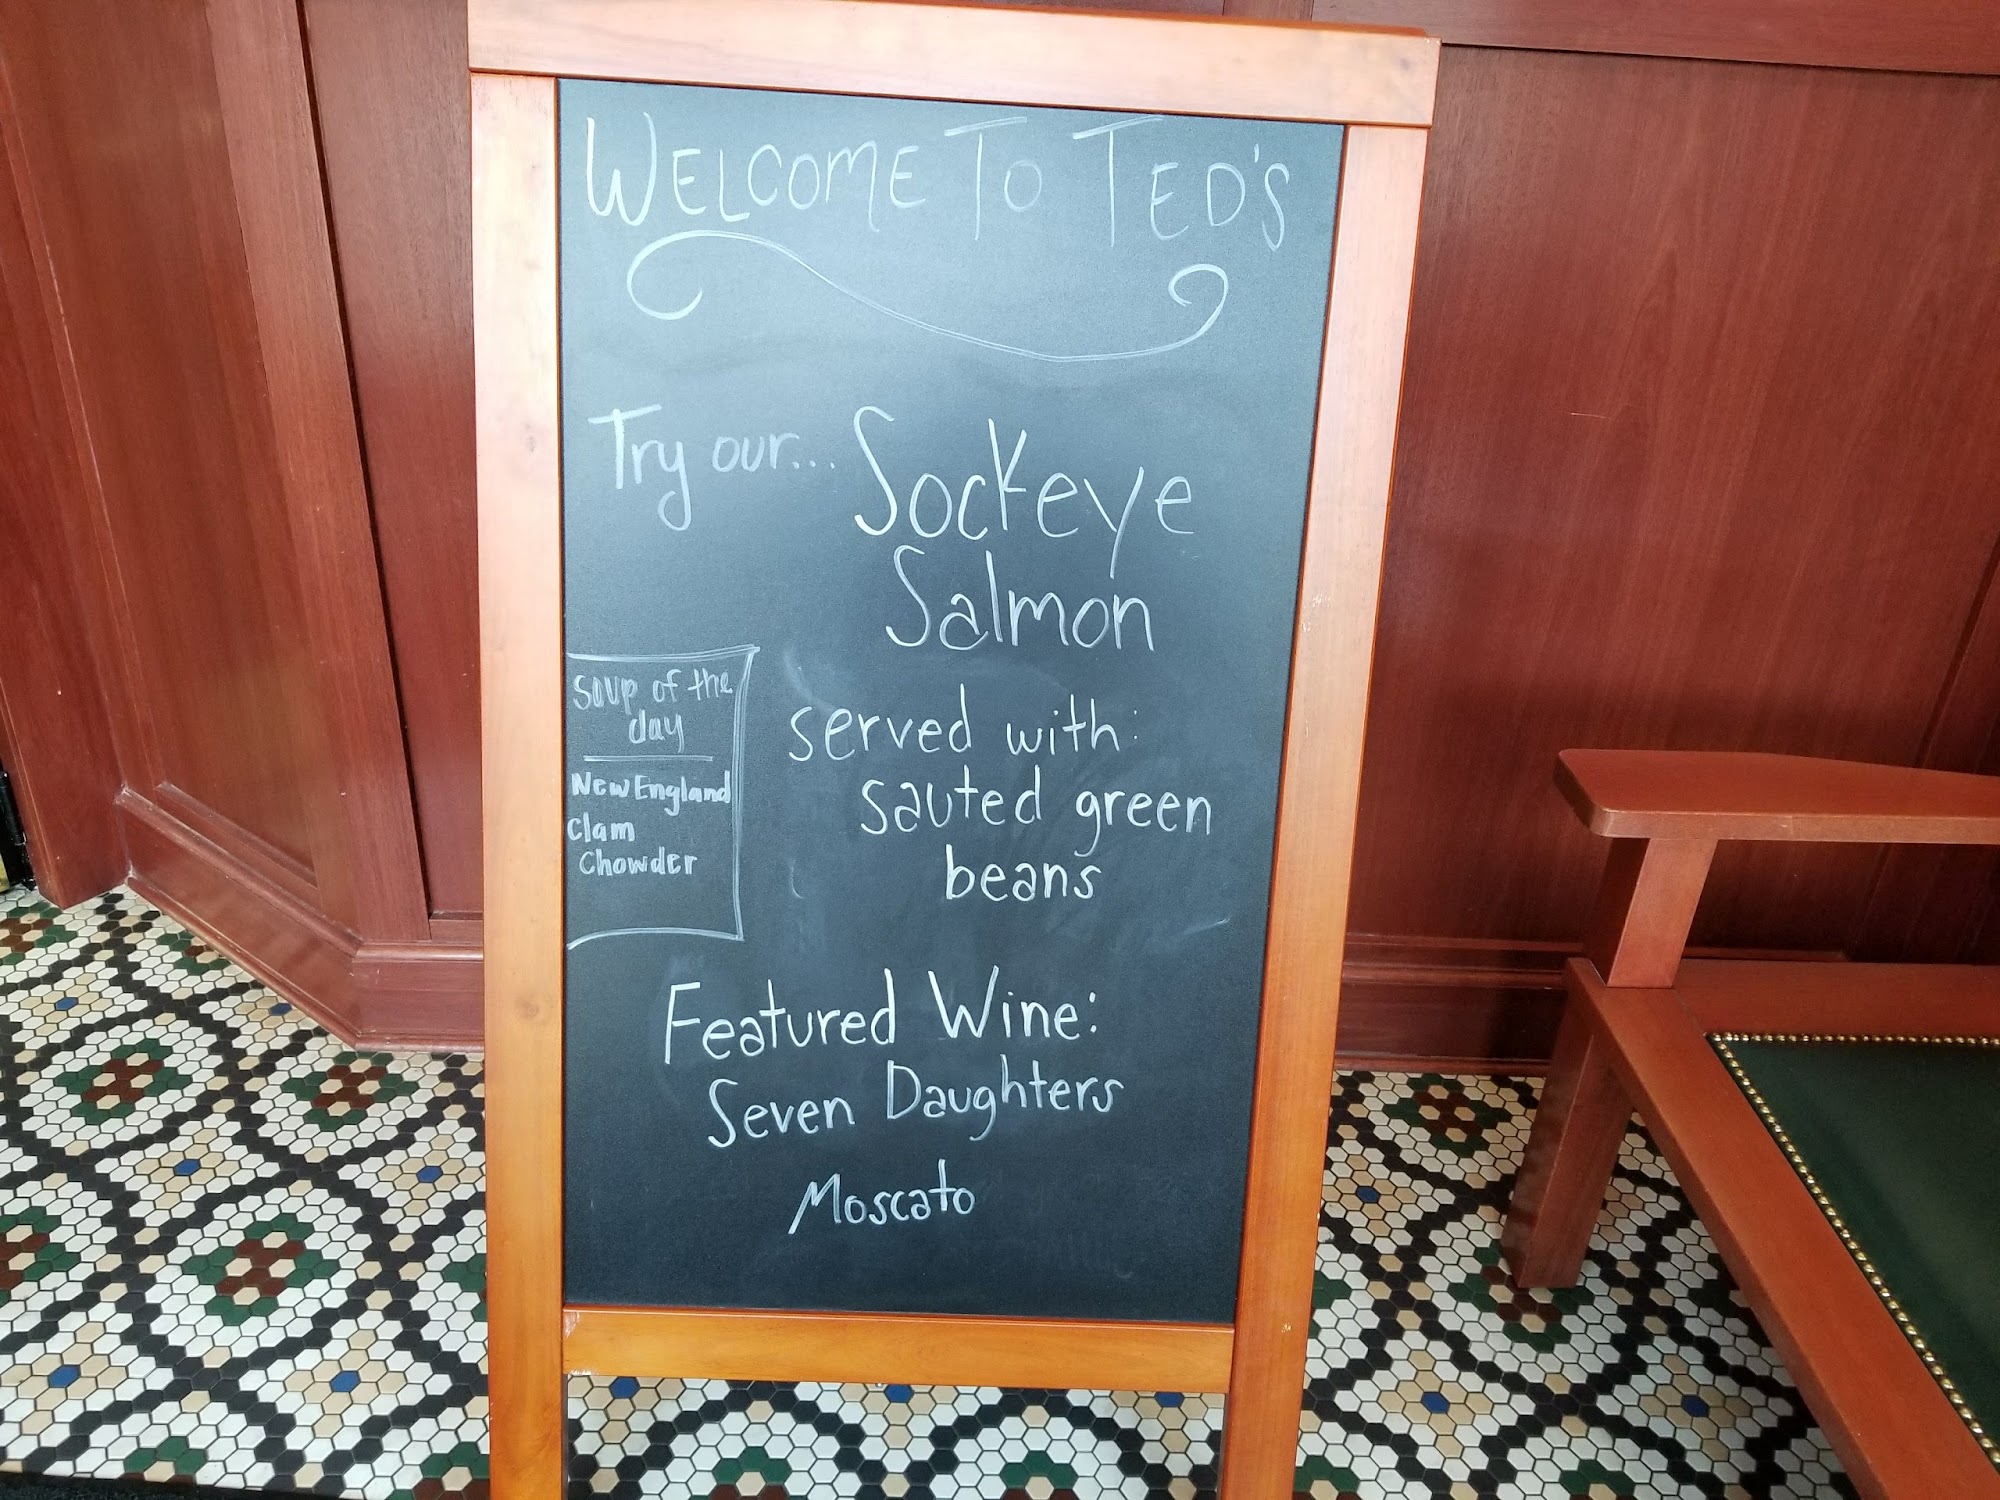 WELCOME TO TED'S
Try our... Sockeye
Salmon
served with:
sauted green
beans
soup of the
day
New England
Clam
Chowder
Featured Wine:
Seven Daughters
Moscato